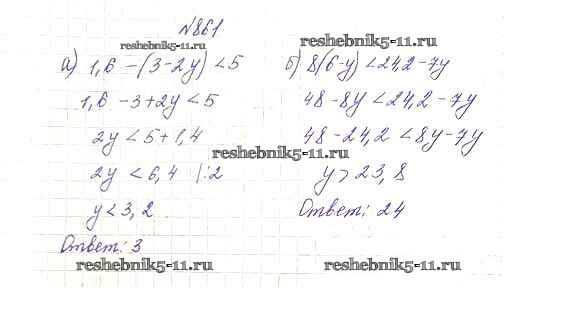 №861
reshebnik5-11.ru
а) 1,6 - (3 - 2y) < 5
1,6 - 3 + 2y < 5
2y < 5 + 1,4
2y < 6,4 |:2
y < 3,2
Ответ: 3
reshebnik5-11.ru
reshebnik5-11.ru
б) 8(6-y) < 24,2 - 7y
48 - 8y < 24,2 - 7y
48 - 24,2 < 8y - 7y
reshebnik5-11.ru
y > 23,8
Ответ: 24
reshebnik5-11.ru